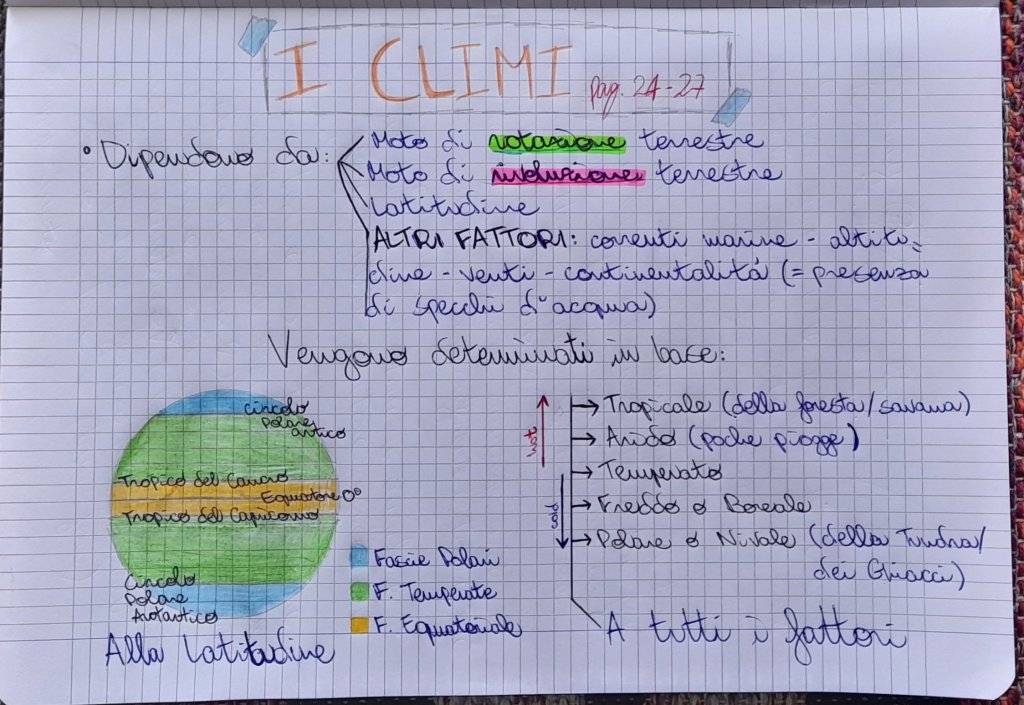 I CLIMI pag. 24-27
• Dipendono da:
Moto di rotazione terrestre
Moto di rivoluzione terrestre
Latitudine
ALTRI FATTORI: correnti marine - altitu=
dine - venti - continentalitá (= presenza
di specchi d'acqua)
Vengono determinati in base:
Circolo
Polare
artico
Tropico del Cancro
Equatore 0°
Tropico del Capricorno
Circolo
Polare
Antartico
Fascie Polari
F. Temperate
F. Equatoriale
Alla Latitudine
→ Tropicale (della foresta/savana)
→ Arido (poche piogge)
→ Temperato
→ Freddo o Boreale
→ Polare o Nivale (della Tundra/
dei Ghiacci)
A tutti i fattori